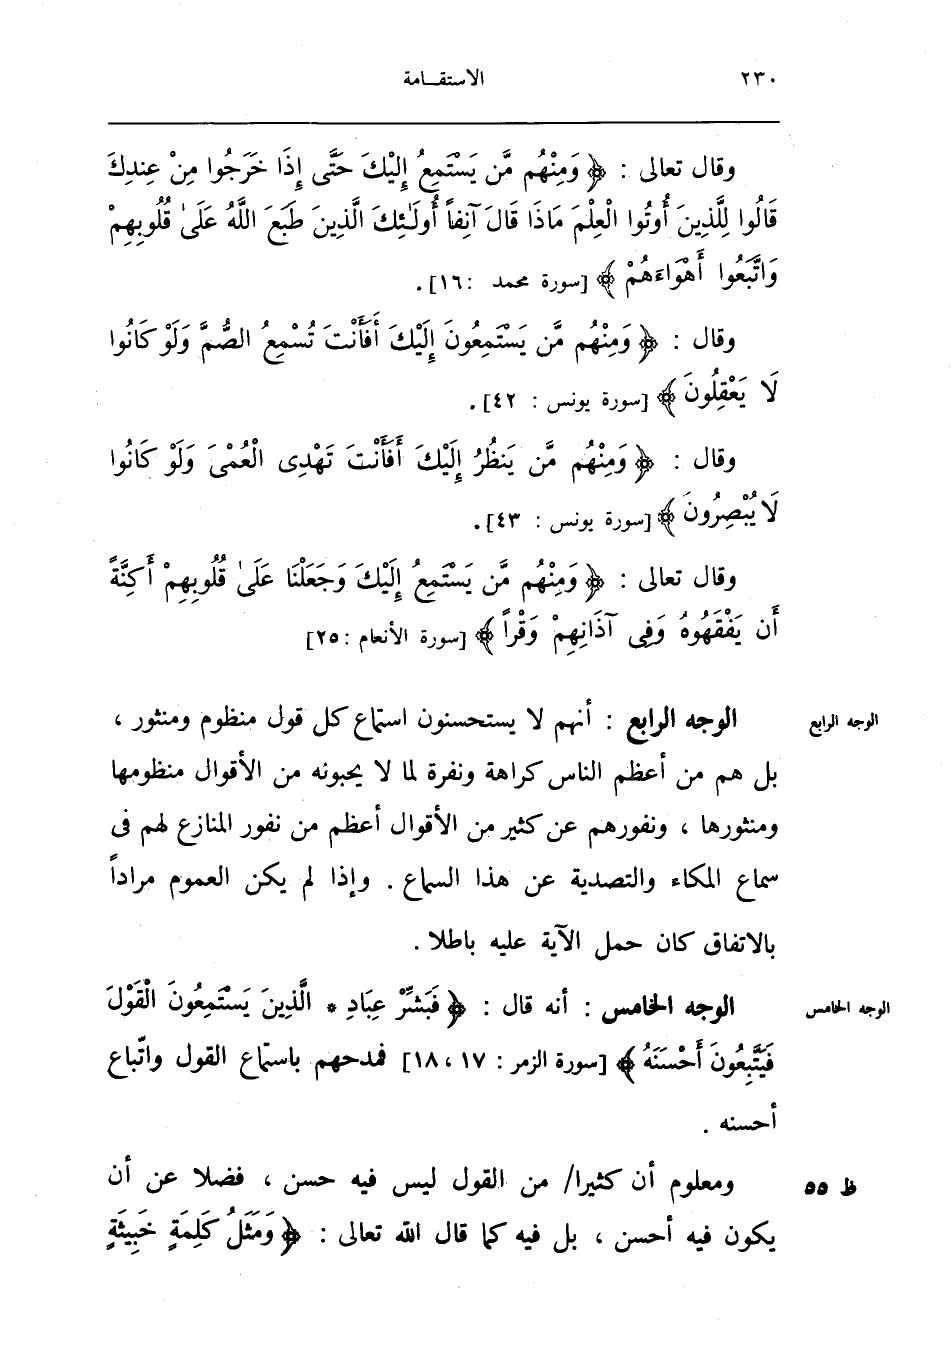 ٢٣٠ الاستقـامة
وقال تعالى : ﴿ وَمِنْهُم مَّن يَسْتَمِعُ إِلَيْكَ حَتَّى إِذَا خَرَجُوا مِنْ عِندِكَ
قَالُوا لِلَّذِينَ أُوتُوا الْعِلْمَ مَاذَا قَالَ آنِفاً أُولَٰئِكَ الَّذِينَ طَبَعَ اللَّهُ عَلَىٰ قُلُوبِهِمْ
وَاتَّبَعُوا أَهْوَاءَهُمْ ﴾ [سورة محمد : ١٦] .
وقال : ﴿ وَمِنْهُم مَّن يَسْتَمِعُونَ إِلَيْكَ أَفَأَنْتَ تُسْمِعُ الصُّمَّ وَلَوْ كَانُوا
لَا يَعْقِلُونَ ﴾ [سورة يونس : ٤٢] .
وقال : ﴿ وَمِنْهُم مَّن يَنظُرُ إِلَيْكَ أَفَأَنْتَ تَهْدِى الْعُمْىَ وَلَوْ كَانُوا
لَا يُبْصِرُونَ ﴾ [سورة يونس : ٤٣] .
وقال تعالى : ﴿ وَمِنْهُم مَّن يَسْتَمِعُ إِلَيْكَ وَجَعَلْنَا عَلَىٰ قُلُوبِهِمْ أَكِنَّةً
أَن يَفْقَهُوهُ وَفِى آذَانِهِمْ وَقْراً ﴾ [سورة الأنعام : ٢٥]
الوجه الرابع الوجه الرابع : أنهم لا يستحسنون استماع كل قول منظوم ومنثور ،
بل هم من أعظم الناس كراهة ونفرة لما لا يحبونه من الأقوال منظومها
ومنثورها ، ونفورهم عن كثير من الأقوال أعظم من نفور المنازع لهم فى
سماع المكاء والتصدية عن هذا السماع . وإذا لم يكن العموم مراداً
بالاتفاق كان حمل الآية عليه باطلا .
الوجه الخامس الوجه الخامس : أنه قال : ﴿ فَبَشِّرْ عِبَادِ * الَّذِينَ يَسْتَمِعُونَ الْقَوْلَ
فَيَتَّبِعُونَ أَحْسَنَهُ ﴾ [سورة الزمر : ١٧ ، ١٨] فمدحهم باستماع القول واتّباع
أحسنه .
ظ ٥٥ ومعلوم أن كثيرا/ من القول ليس فيه حسن ، فضلا عن أن
يكون فيه أحسن ، بل فيه كما قال الله تعالى : ﴿ وَمَثَلُ كَلِمَةٍ خَبِيثَةٍ